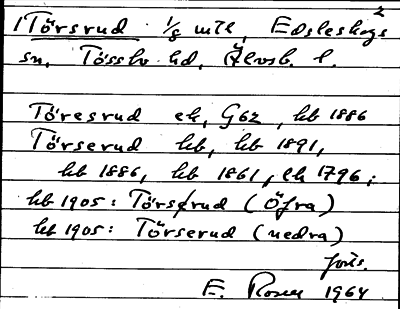 2
1 Törsrud 1/8 mtl, Edsleskogs
sn, Tössbo hd, Älvsb. l.
Töresrud ek, G62, hb 1886
Törserud hb, hb 1891,
hb 1886, hb 1861, ek 1796;
hb 1905: Törsrud (Öfra)
hb 1905: Törserud (nedra)
forts.
E. Rosen 1964